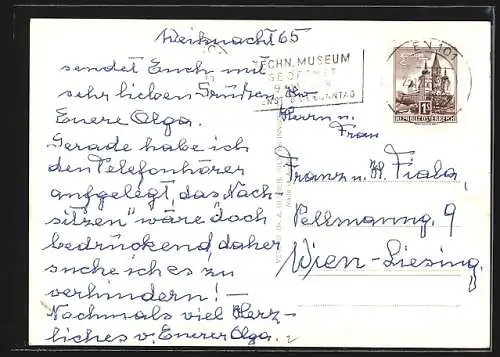 Weihnacht 65
sendet Euch mit
sehr lieben Grüßen Ihre
Euere Olga.
Gerade habe ich
den Telefonhörer
aufgelegt, das „Nach
sitzen" wäre doch
bedrückend, daher
suche ich es zu
verhindern! –
Nochmals viel Herz-
liches v. Euerer Olga.
TECHN. MUSEUM
GEÖFFNET
SONNTAG
1S
REPUBLIK ÖSTERREICH
101
Herrn u.
Frau
Franz u. H. Fiala,
Pellmanng. 9
Wien-Liesing